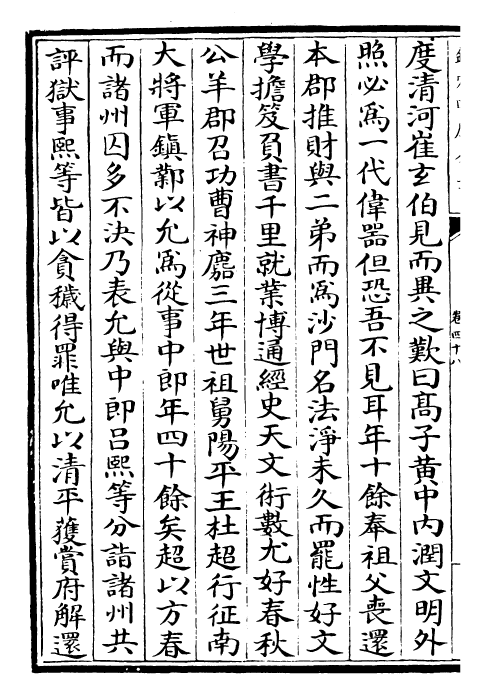 度清河崔玄伯見而異之歎曰髙子黄中内潤文明外
照必為一代偉器但恐吾不見耳年十餘奉祖父喪還
本郡推財與二弟而為沙門名法淨未久而罷性好文
學擔笈負書千里就業博通經史天文術數尤好春秋
公羊郡召功曹神䴥三年世祖舅陽平王杜超行征南
大將軍鎮鄴以允為從事中郎年四十餘矣超以方春
而諸州囚多不決乃表允與中郎吕熙等分詣諸州共
評獄事熙等皆以貪穢得罪唯允以清平獲賞府解還
卷四十八